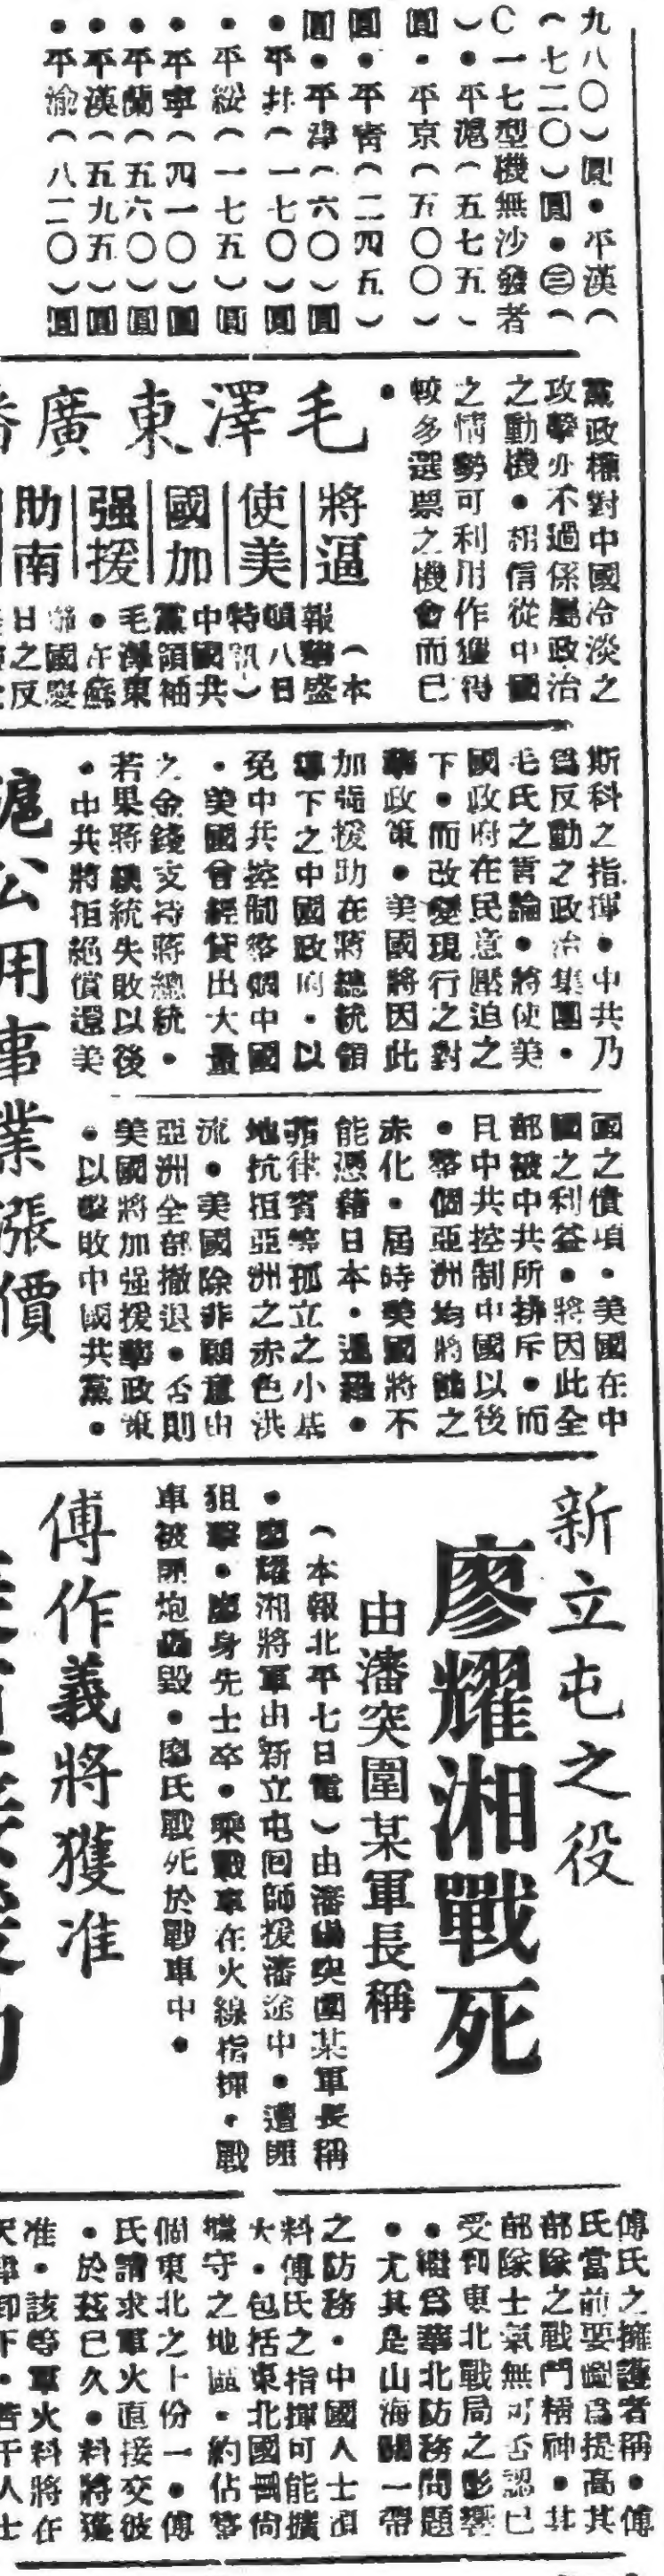 九八〇）圓•平漢（
七二〇）圓•㊂（
C一七型機無沙發者
）•平滬（五七五）
圓•平京（五〇〇）
圓•平青（二四五）
圓•平津（六〇）圓
•平井（一七〇）圓
•平綏（一七五）圓
•平寧（四一〇）圓
•平蘭（五六〇）圓
•平漢（五九五）圓
•平渝（八二〇）圓
黨政權對中國冷淡之
攻擊亦不過係屬政治
之動機•相信從中國
之情勢可利用作獲得
較多選票之機會而已
•
毛澤東廣播
將逼
使美
國加
强援
助南
（本
報華盛
頓八日
特訊）
中國共
黨領袖
毛澤東
•在蘇
聯國慶
日之反
斯科之指揮•中共乃
爲反動之政治集團•
毛氏之言論•將使美
國政府在民意壓迫之
下•而改變現行之對
華政策•美國將因此
加强援助在蔣總統領
導下之中國政府•以
免中共控制整個中國
•美國曾經貸出大量
之金錢支持蔣總統•
若果蔣總統失敗以後
•中共將拒絕償還美
國之債項•美國在中
國之利益•將因此全
部被中共所排斥•而
且中共控制中國以後
•整個亞洲均將隨之
赤化•屆時美國將不
能憑藉日本•暹羅•
菲律賓等孤立之小基
地抗拒亞洲之赤色洪
流•美國除非願意由
亞洲全部撤退•否則
美國將加强援華政策
•以擊敗中國共黨•
滬公用事業漲價
新立屯之役
廖耀湘戰死
由瀋突圍某軍長稱
（本報北平七日電）由瀋陽突圍某軍長稱
•廖耀湘將軍由新立屯回師援瀋途中•遭匪
狙擊•廖身先士卒•乘戰車在火線指揮•戰
車被匪炮轟毀•廖氏戰死於戰車中•
傅作義將獲准
傅氏之擁護者稱•傅
氏當前要圖爲提高其
部隊之戰鬥精神•其
部隊士氣無可否認已
受到東北戰局之影響
•繼爲華北防務問題
•尤其是山海關一帶
之防務•中國人士預
料傅氏之指揮可能擴
大•包括東北國軍尙
據守之地區•約佔整
個東北之十份一•傅
氏請求軍火直接交彼
•於茲已久•料將獲
准•該等軍火料將在
天津卸下•若干人士